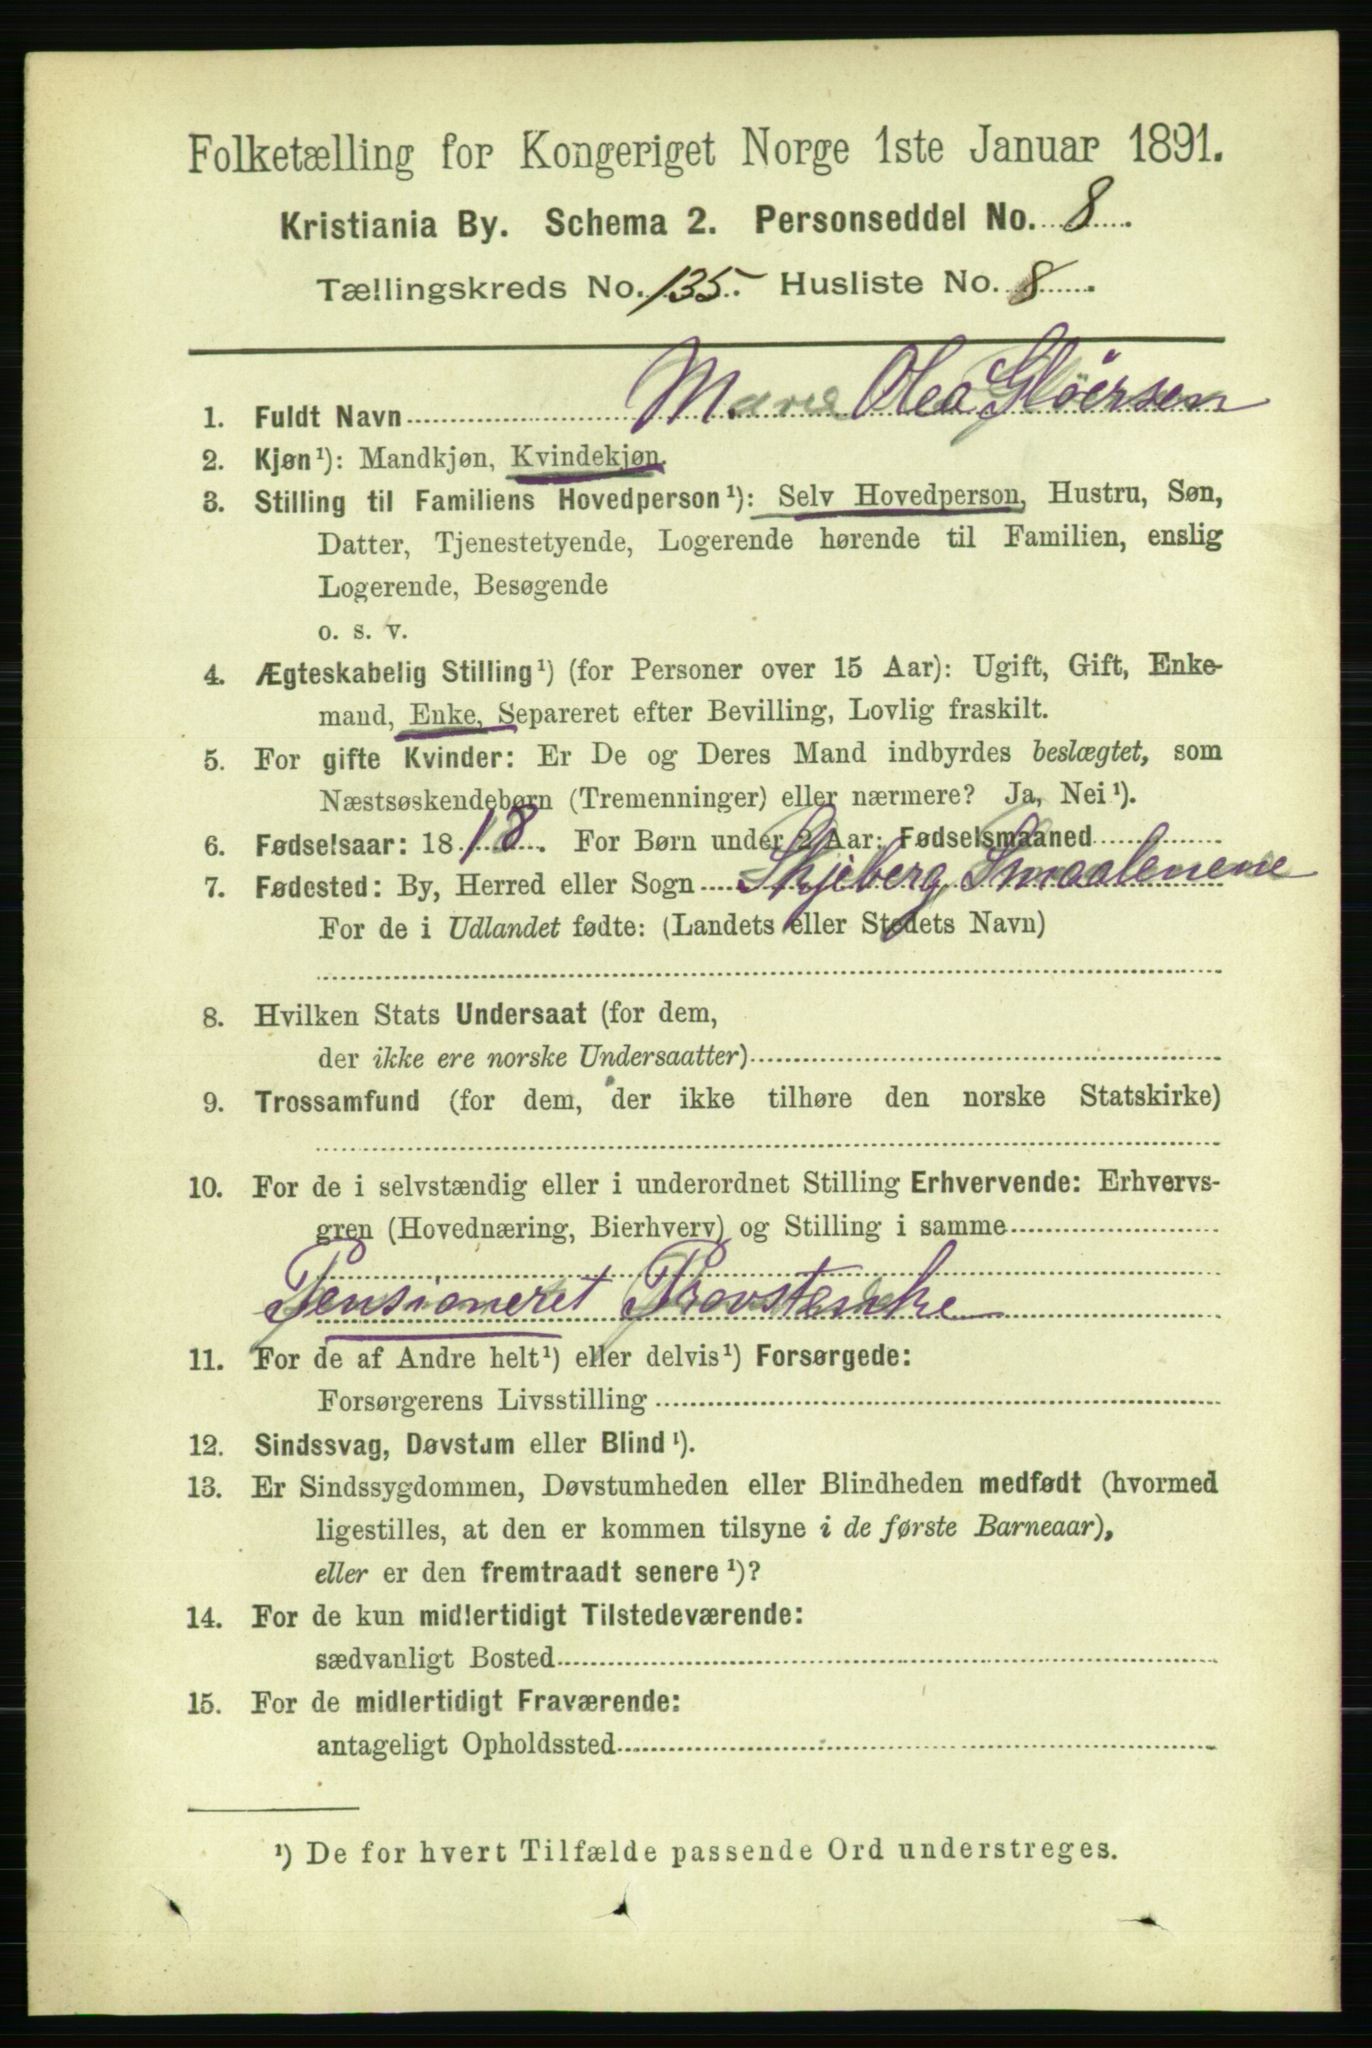 Folketælling for Kongeriget Norge 1ste Januar 1891.
Kristiania By. Schema 2. Personseddel No. 8
Tællingskreds No. 135. Husliste No. 8
1. Fuldt Navn Maren Olea Gløersen
2. Kjøn¹): Mandkjøn, Kvindekjøn.
3. Stilling til Familiens Hovedperson¹): Selv Hovedperson, Hustru, Søn,
Datter, Tjenestetyende, Logerende hørende til Familien, enslig
Logerende, Besøgende
o. s. v.
4. Ægteskabelig Stilling¹) (for Personer over 15 Aar): Ugift, Gift, Enke-
mand, Enke, Separeret efter Bevilling, Lovlig fraskilt.
5. For gifte Kvinder: Er De og Deres Mand indbyrdes beslægtet, som
Næstsøskendebørn (Tremenninger) eller nærmere? Ja, Nei¹).
6. Fødselsaar: 1818. For Børn under 2 Aar: Fødselsmaaned
7. Fødested: By, Herred eller Sogn Skjeberg Smaalenene
For de i Udlandet fødte: (Landets eller Stedets Navn)
8. Hvilken Stats Undersaat (for dem,
der ikke ere norske Undersaatter)
9. Trossamfund (for dem, der ikke tilhøre den norske Statskirke)
10. For de i selvstændig eller i underordnet Stilling Erhvervende: Erhvervs-
gren (Hovednæring, Bierhverv) og Stilling i samme
Pensioneret Provstenke
11. For de af Andre helt¹) eller delvis¹) Forsørgede:
Forsørgerens Livsstilling
12. Sindssvag, Døvstum eller Blind¹).
13. Er Sindssygdommen, Døvstumheden eller Blindheden medfødt (hvormed
ligestilles, at den er kommen tilsyne i de første Barneaar),
eller er den fremtraadt senere¹)?
14. For de kun midlertidigt Tilstedeværende:
sædvanligt Bosted
15. For de midlertidigt Fraværende:
antageligt Opholdssted
¹) De for hvert Tilfælde passende Ord understreges.